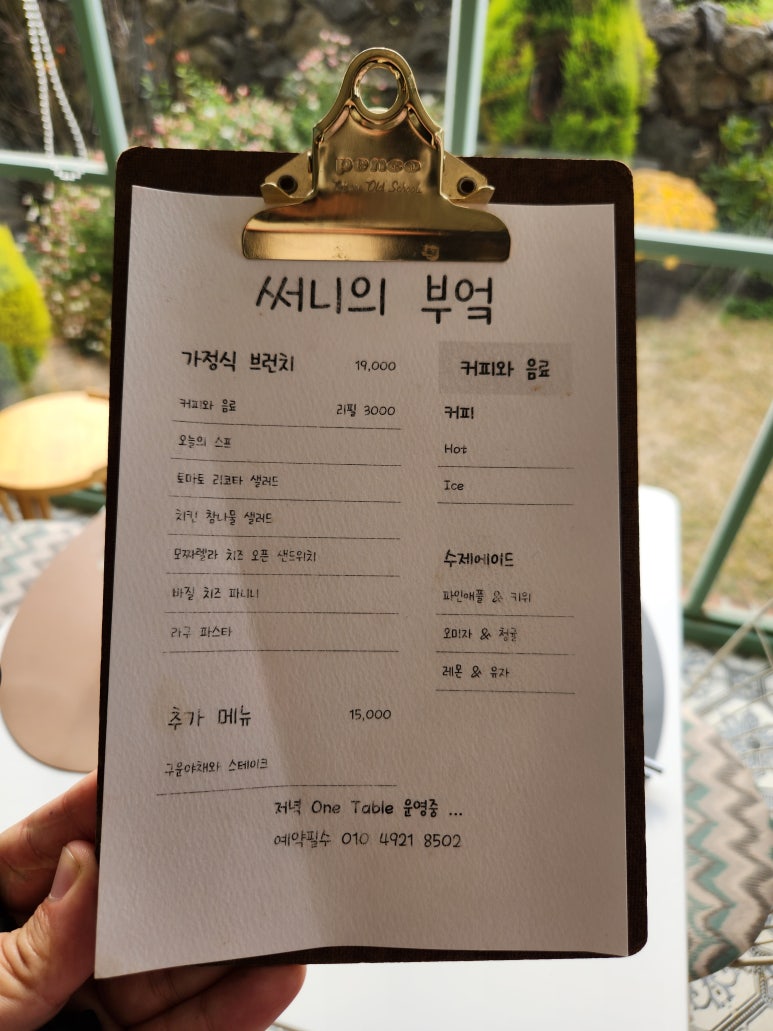 penco
써니의 부엌
가정식 브런치 19,000
커피와 음료 리필 3000
오늘의 스프
토마토 리코타 샐러드
치킨 참나물 샐러드
모짜렐라 치즈 오픈 샌드위치
바질 치즈 파니니
라구 파스타
추가 메뉴 15,000
구운야채와 스테이크
커피와 음료
커피
Hot
Ice
수제에이드
파인애플 & 키위
오미자 & 청귤
레몬 & 유자
저녁 One Table 운영중 ...
예약필수 010 4921 8502